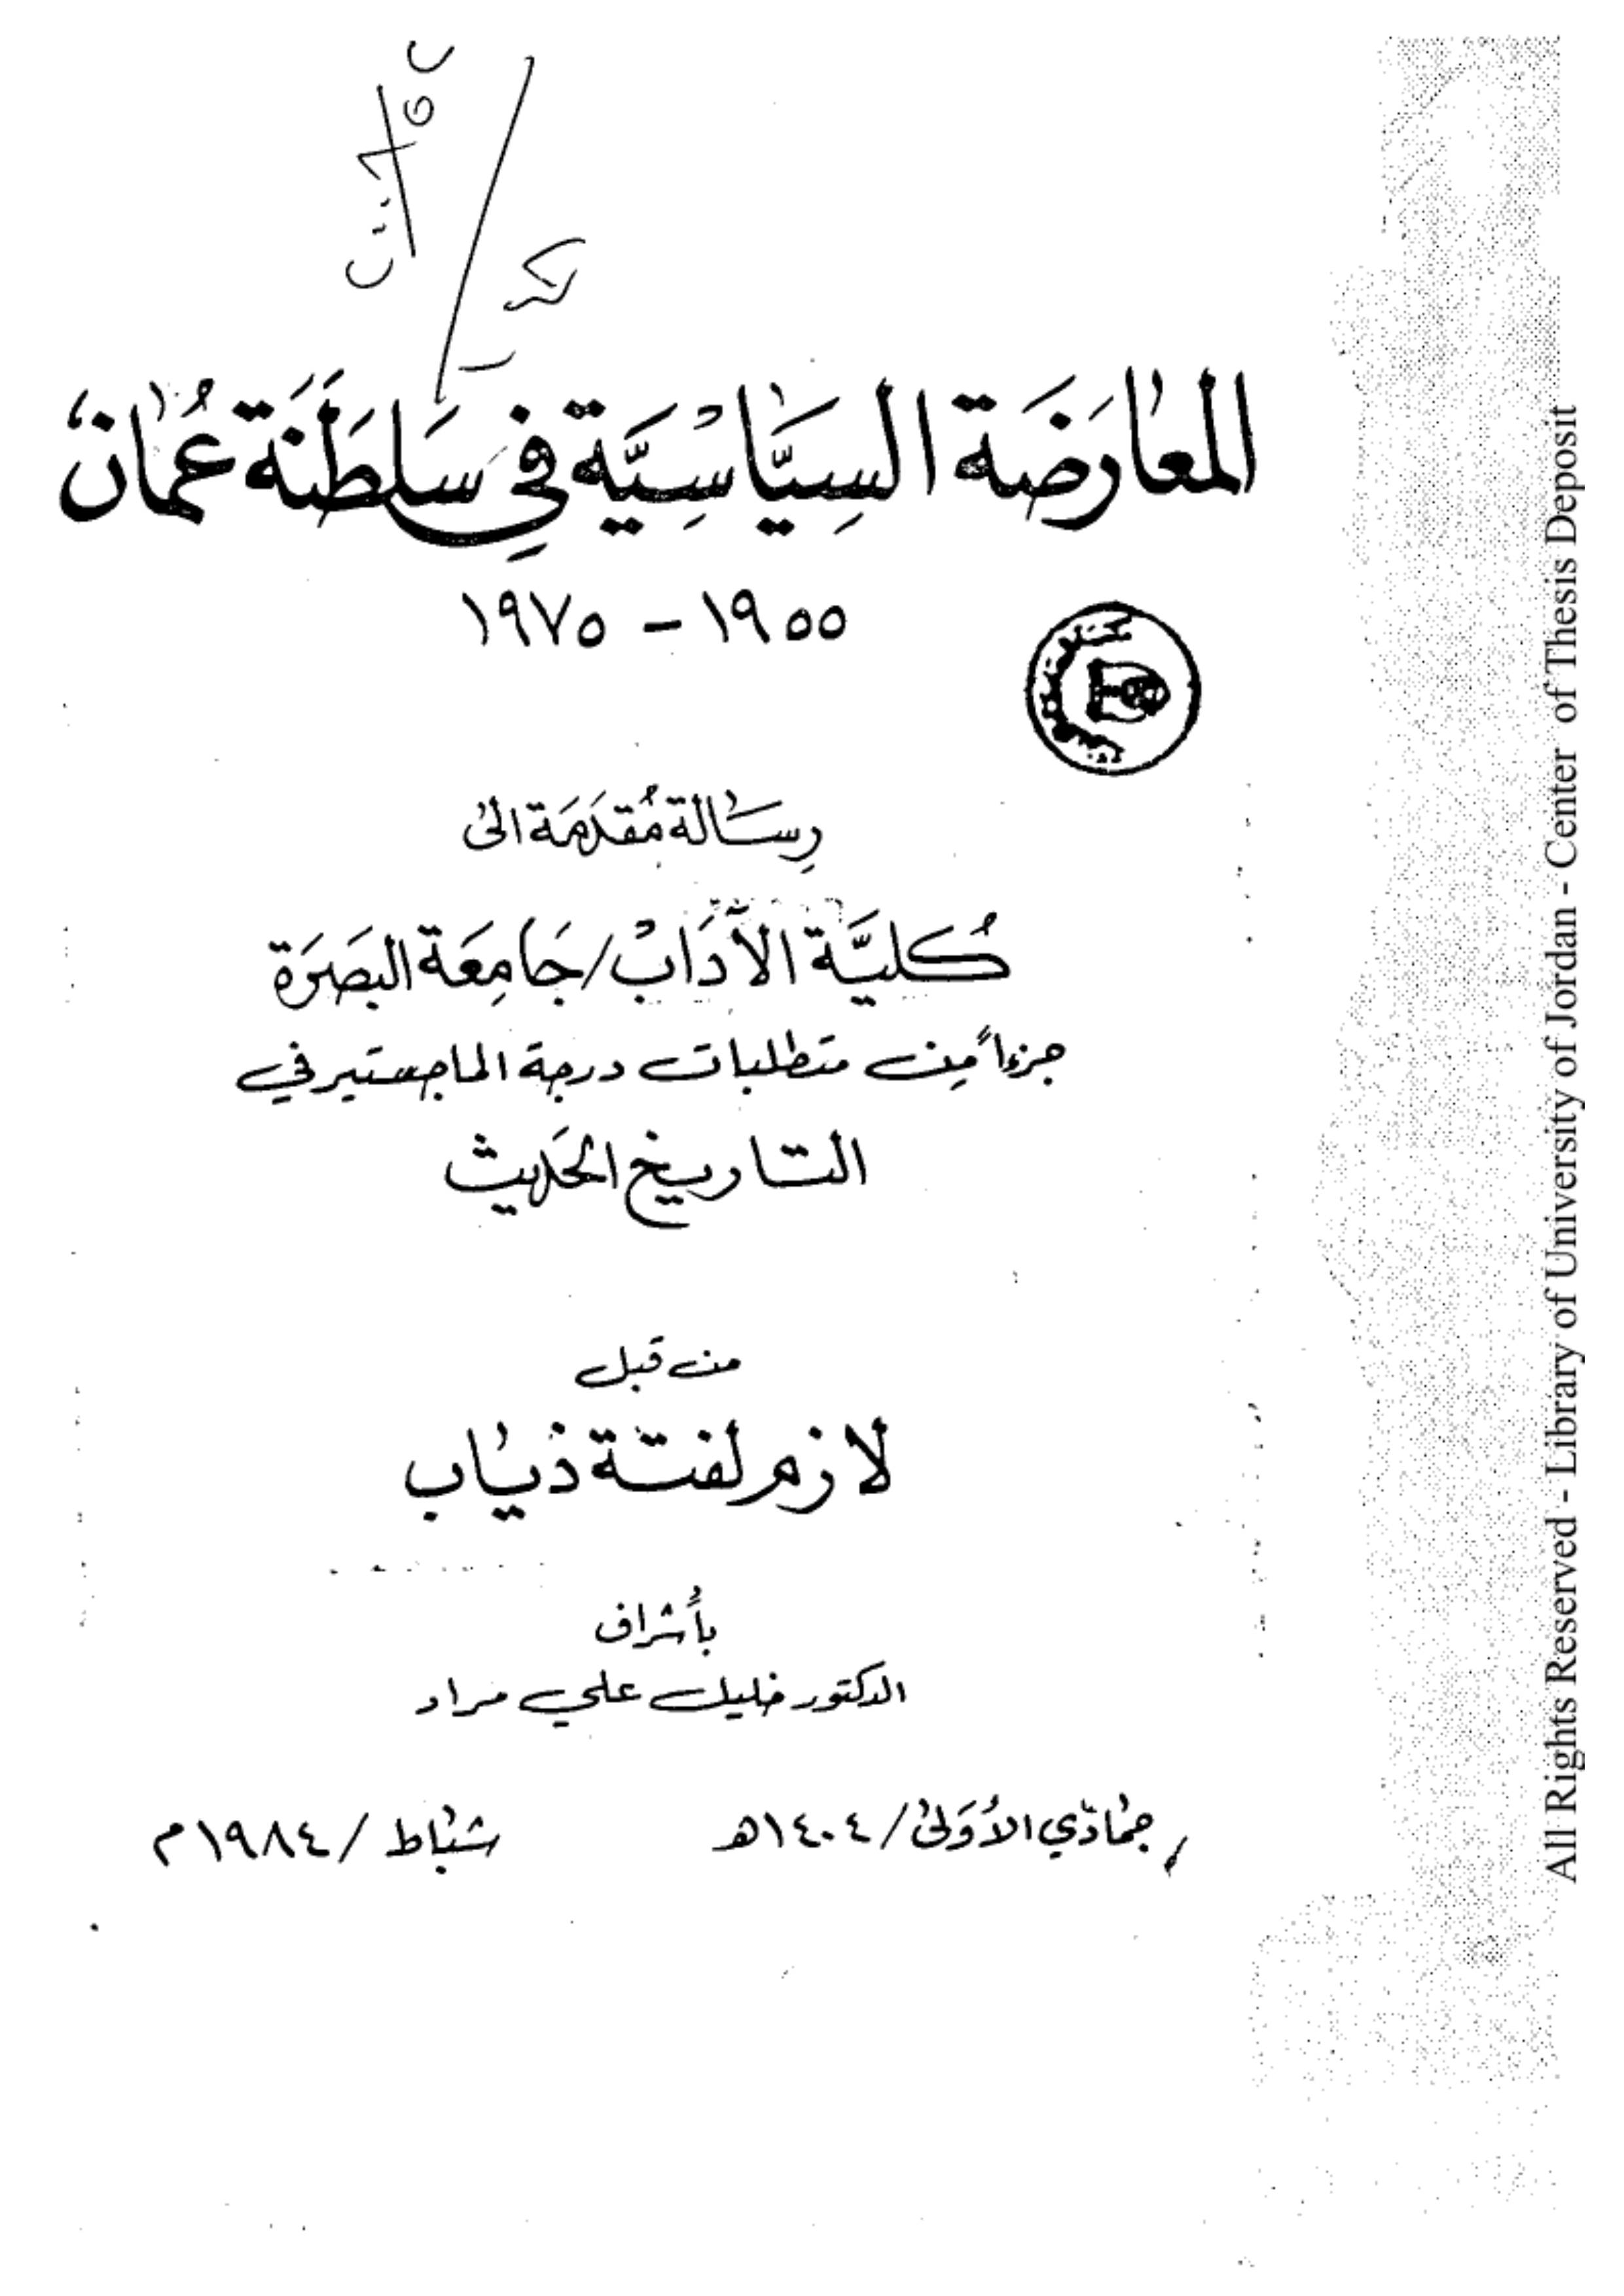 المعارضة السياسية في سلطنة عمان
١٩٥٥ - ١٩٧٥
رسالة مقدمة الى
كلية الآداب / جامعة البصرة
جزءاً من متطلبات درجة الماجستير في
التاريخ الحديث
من قبل
لازم لفتة ذياب
بأشراف
الدكتور خليل علي مراد
جمادي الأولى / ١٤٠٤هـ شباط / ١٩٨٤م
All Rights Reserved - Library of University of Jordan - Center of Thesis Deposit